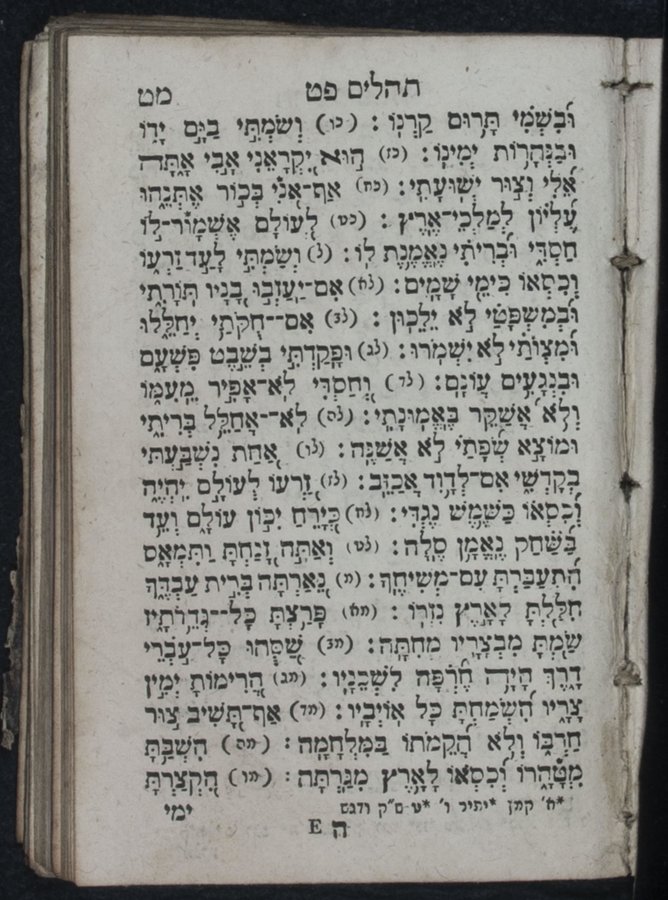 תהלים פט מט
וּבְשִׁמְי תָּרוּם קַרְנוֹ : (כו) וְשַׂמְתִּי בַיָּם יָדוֹ
וּבַנְּהָרוֹת יְמִינוֹ : (כז) הוּא יִקְרָאֵנִי אָבִי אָתָּה
אֵלִי וְצוּר יְשׁוּעָתִי : (כח) אַף־אָנִי בְּכוֹר אֶתְּנֵהוּ
עֶלְיוֹן לְמַלְכֵי־אָרֶץ : (כט) לְעוֹלָם אֶשְׁמָור־לוֹ
חַסְדִּי וּבְרִיתִי נֶאֱמֶנֶת לוֹ : (ל) וְשַׂמְתִּי לָעַד זַרְעוֹ
וְכִסְאוֹ כִּימֵי שָׁמָיִם : (לא) אִם־יַעַזְבוּ בָנָיו תּוֹרָתִי
וּבְמִשְׁפָּטַי לֹא יֵלֵכוּן : (לב) אִם־־חֻקֹּתַי יְחַלֵּלוּ
וּמִצְוֹתַי לֹא יִשְׁמֹרוּ : (לג) וּפָקַדְתִּי בְשֵׁבֶט פִּשְׁעָם
וּבִנְגָעִים עֲוֹנָם : (לד) וְחַסְדִּי לֹא־אָפִיר מֵעִמּוֹ
וְלֹא אֲשַׁקֵּר בֶּאֱמוּנָתִי : (לה) לֹא־־אֲחַלֵּל בְּרִיתִי
וּמוֹצָא שְׂפָתַי לֹא אֲשַׁנֶּה : (לו) אַחַת נִשְׁבַּעְתִּי
בְקָדְשִׁי אִם־לְדָוִד אֲכַזֵּב : (לז) זַרְעוֹ לְעוֹלָם יִהְיֶה
וְכִסְאוֹ כַשֶּׁמֶשׁ נֶגְדִּי : (לח) כְּיָרֵחַ יִכּוֹן עוֹלָם וְעֵד
בַּשַּׁחַק נֶאֱמָן סֶלָה : (לט) וְאַתָּה זָנַחְתָּ וַתִּמְאָס
הִתְעַבַּרְתָּ עִם־מְשִׁיחֶךָ : (מ) נֵאַרְתָּה בְּרִית עַבְדֶּךָ
חִלַּלְתָּ לָאָרֶץ נִזְרוֹ : (מא) פָּרַצְתָּ כָל־־גְּדֵרוֹתָיו
שַׂמְתָּ מִבְצָרָיו מְחִתָּה : (מב) שַׁסֻּהוּ כָּל־עֹבְרֵי
דָרֶךְ הָיָה חֶרְפָּה לִשְׁכֵנָיו : (מג) הֲרִימוֹתָ יְמִין
צָרָיו הִשְׂמַחְתָּ כָּל אוֹיְבָיו : (מד) אַף־תָּשִׁיב צוּר
חַרְבּוֹ וְלֹא הֲקֵמֹתוֹ בַּמִּלְחָמָה : (מה) הִשְׁבַּתָּ
מִטְּהָרוֹ וְכִסְאוֹ לָאָרֶץ מִגַּרְתָּה : (מו) הִקְצַרְתָּ
*ח׳ קמץ *יתיר ו׳ ודגש
ימי
ה E